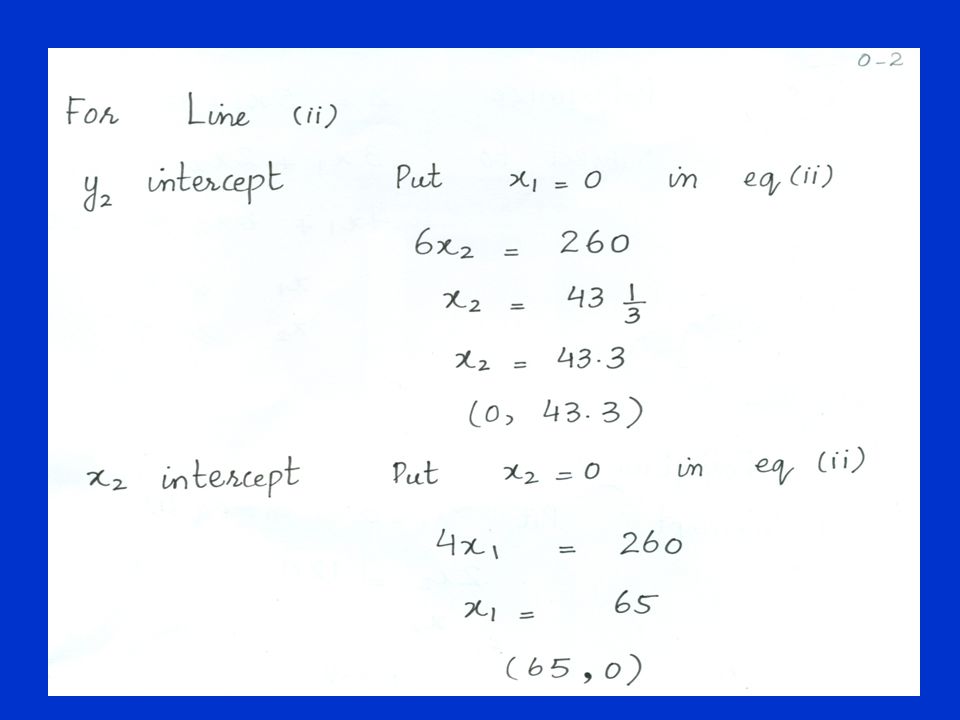 0-2
For Line (ii)
y₂ intercept Put x₁ = 0 in eq (ii)
6x₂ = 260
x₂ = 43 1/3
x₂ = 43.3
(0, 43.3)
x₂ intercept Put x₂ = 0 in eq (ii)
4x₁ = 260
x₁ = 65
(65, 0)